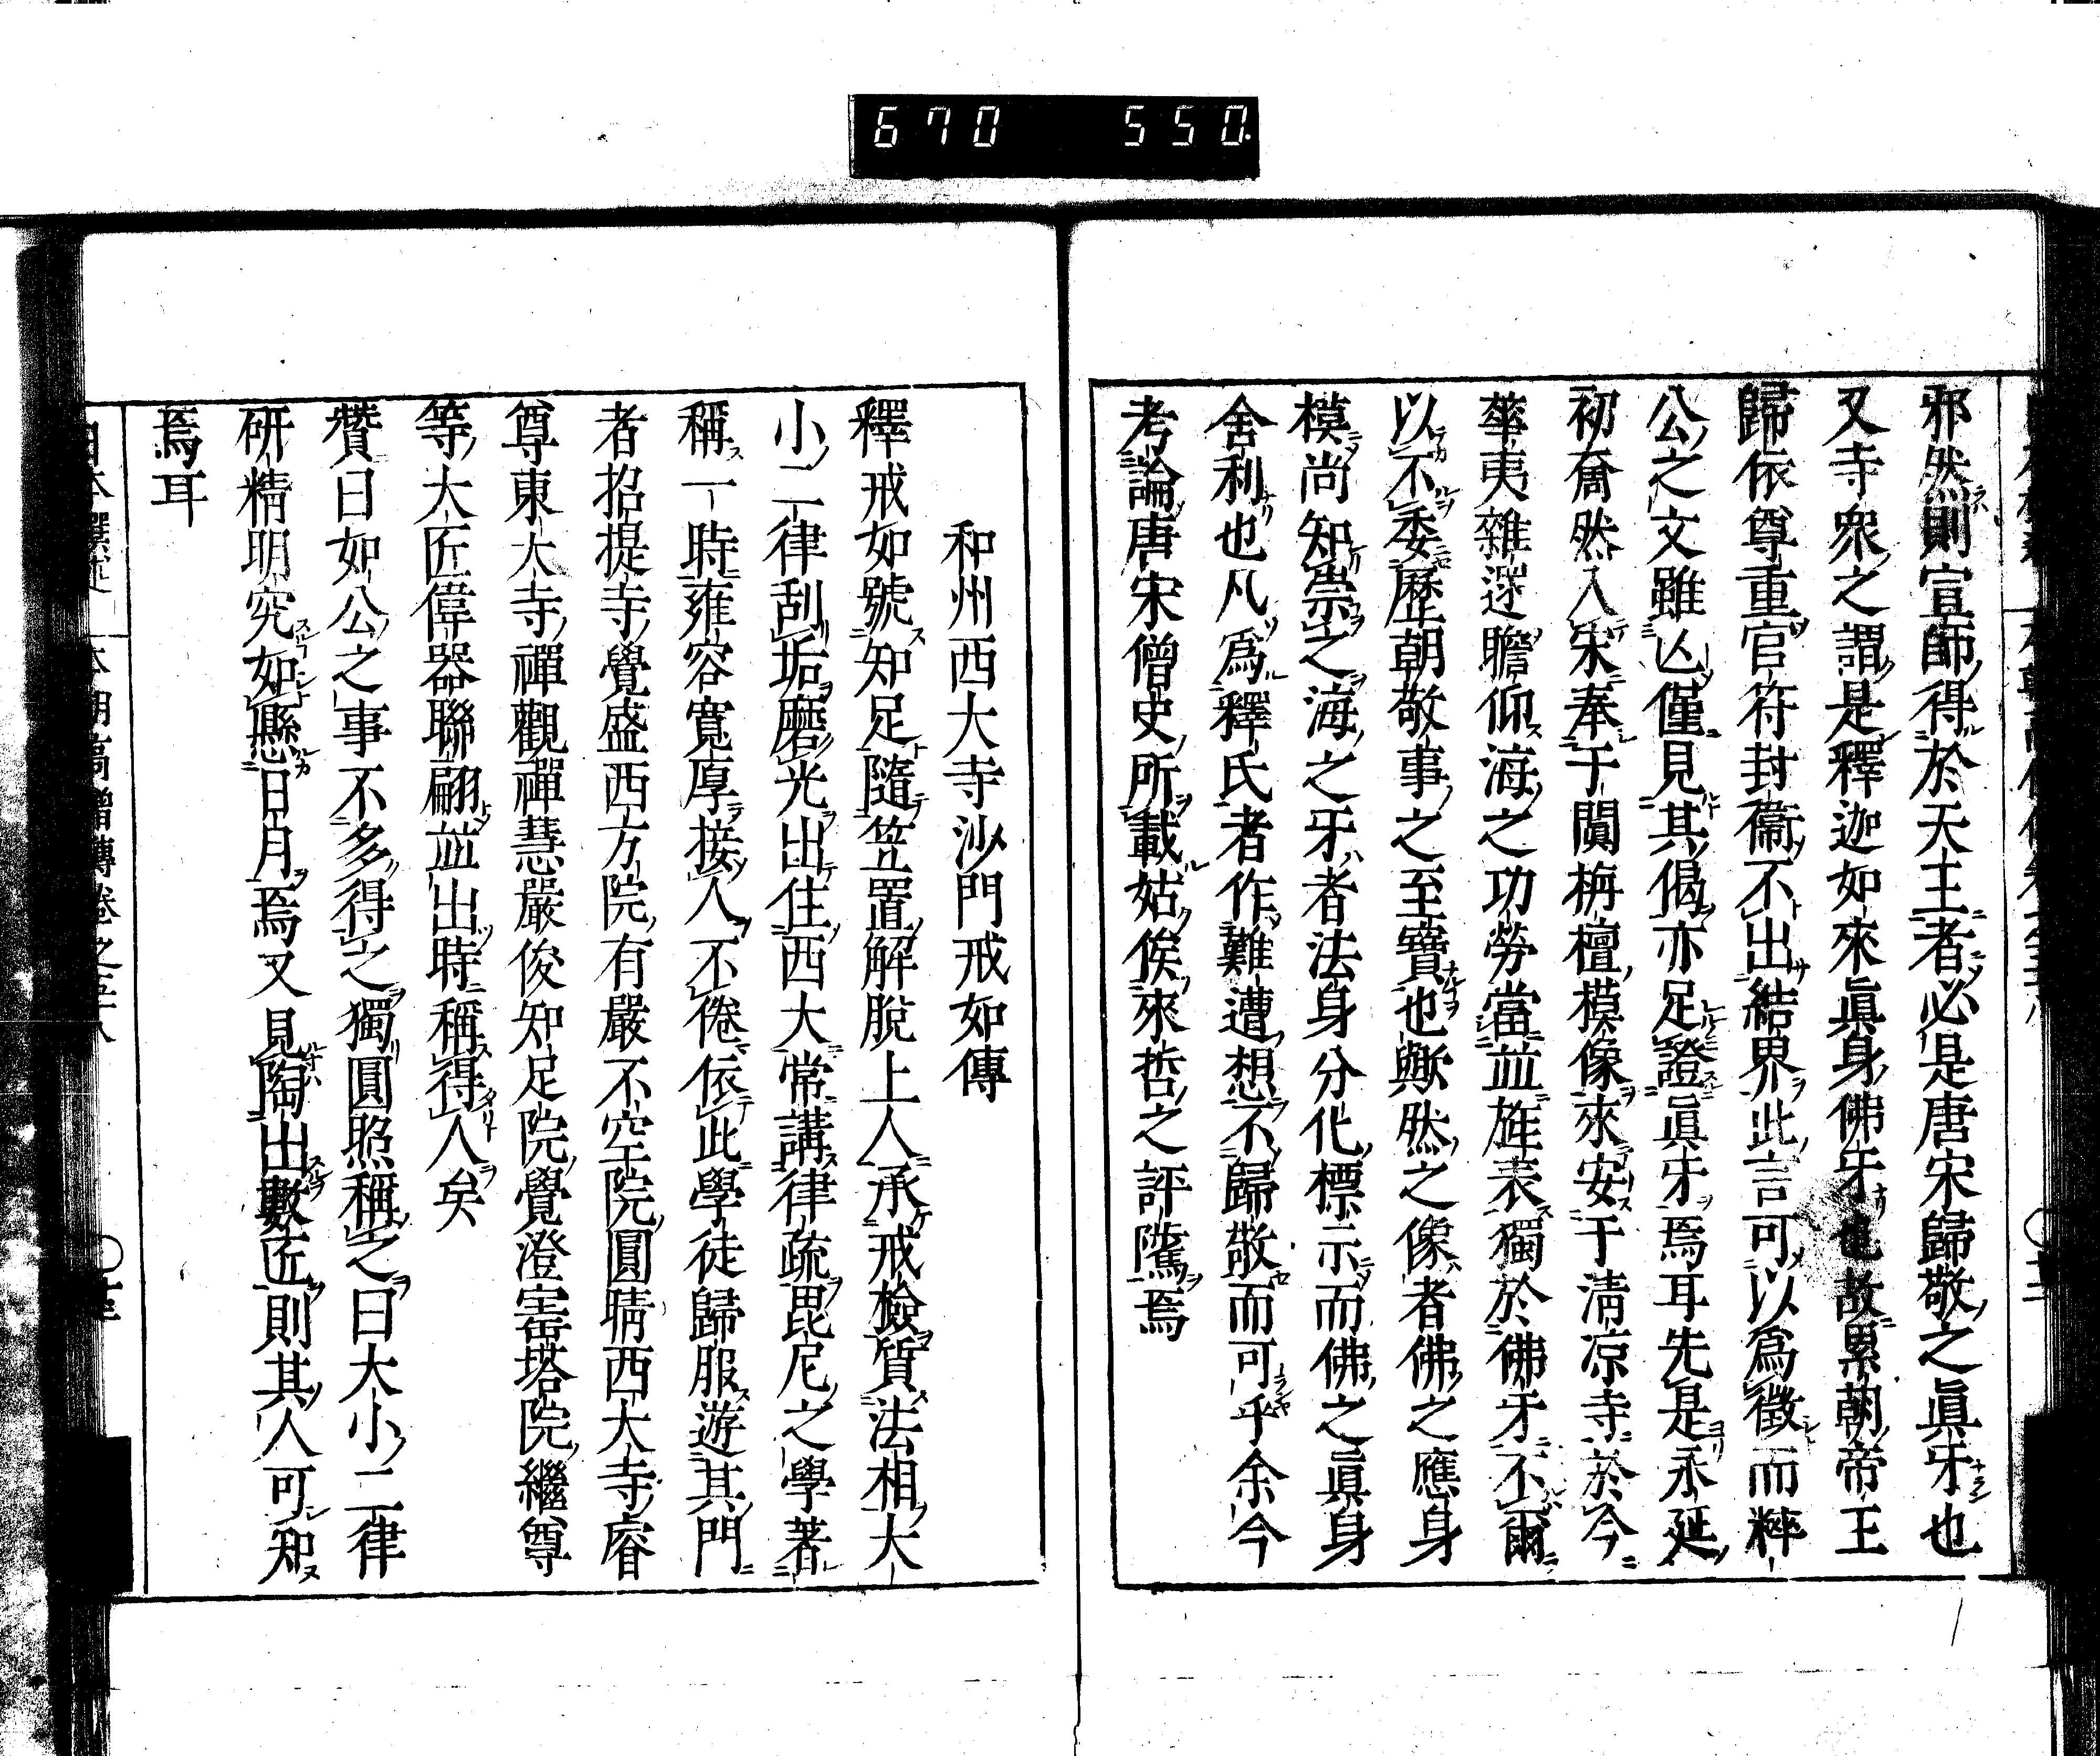 670 550
邪然則宣師得於天王者必是唐宋歸敬之眞牙也
又寺衆之謂是釋迦如來眞身佛牙也故累朝帝王
歸依尊重官符封衞不出結界此言可以爲徵而粹
公之文雖亾僅見其偈亦足證眞牙焉耳先是永延
初奝然入宋奉于闐栴檀模像來安于淸凉寺於今
華夷雜遝瞻仰海之功勞當並旌表獨於佛牙不爾
以不委歷朝敬事之至寶也歟然之像者佛之應身
模尚知崇之海之牙者法身分化標示而佛之眞身
舍利也凡爲釋氏者作難遭想不歸敬而可乎余今
考論唐宋僧史所載姑俟來哲之評隲焉
和州西大寺沙門戒如傳
釋戒如號知足隨笠置解脫上人承戒檢質法相大
小二律刮垢磨光出住西大常講律疏毘尼之學著
稱一時雍容寬厚接人不倦依此學徒歸服游其門
者招提寺覺盛西方院有嚴不空院圓晴西大寺睿
尊東大寺禪觀禪慧嚴俊知足院覺澄寚塔院繼尊
等大匠偉器聯翩並出時稱得人矣
贊曰如公之事不多得之獨圓照稱之曰大小二律
研精明究如懸日月焉又見陶出數匠則其人可知
焉耳
本朝高僧傳卷之五十八